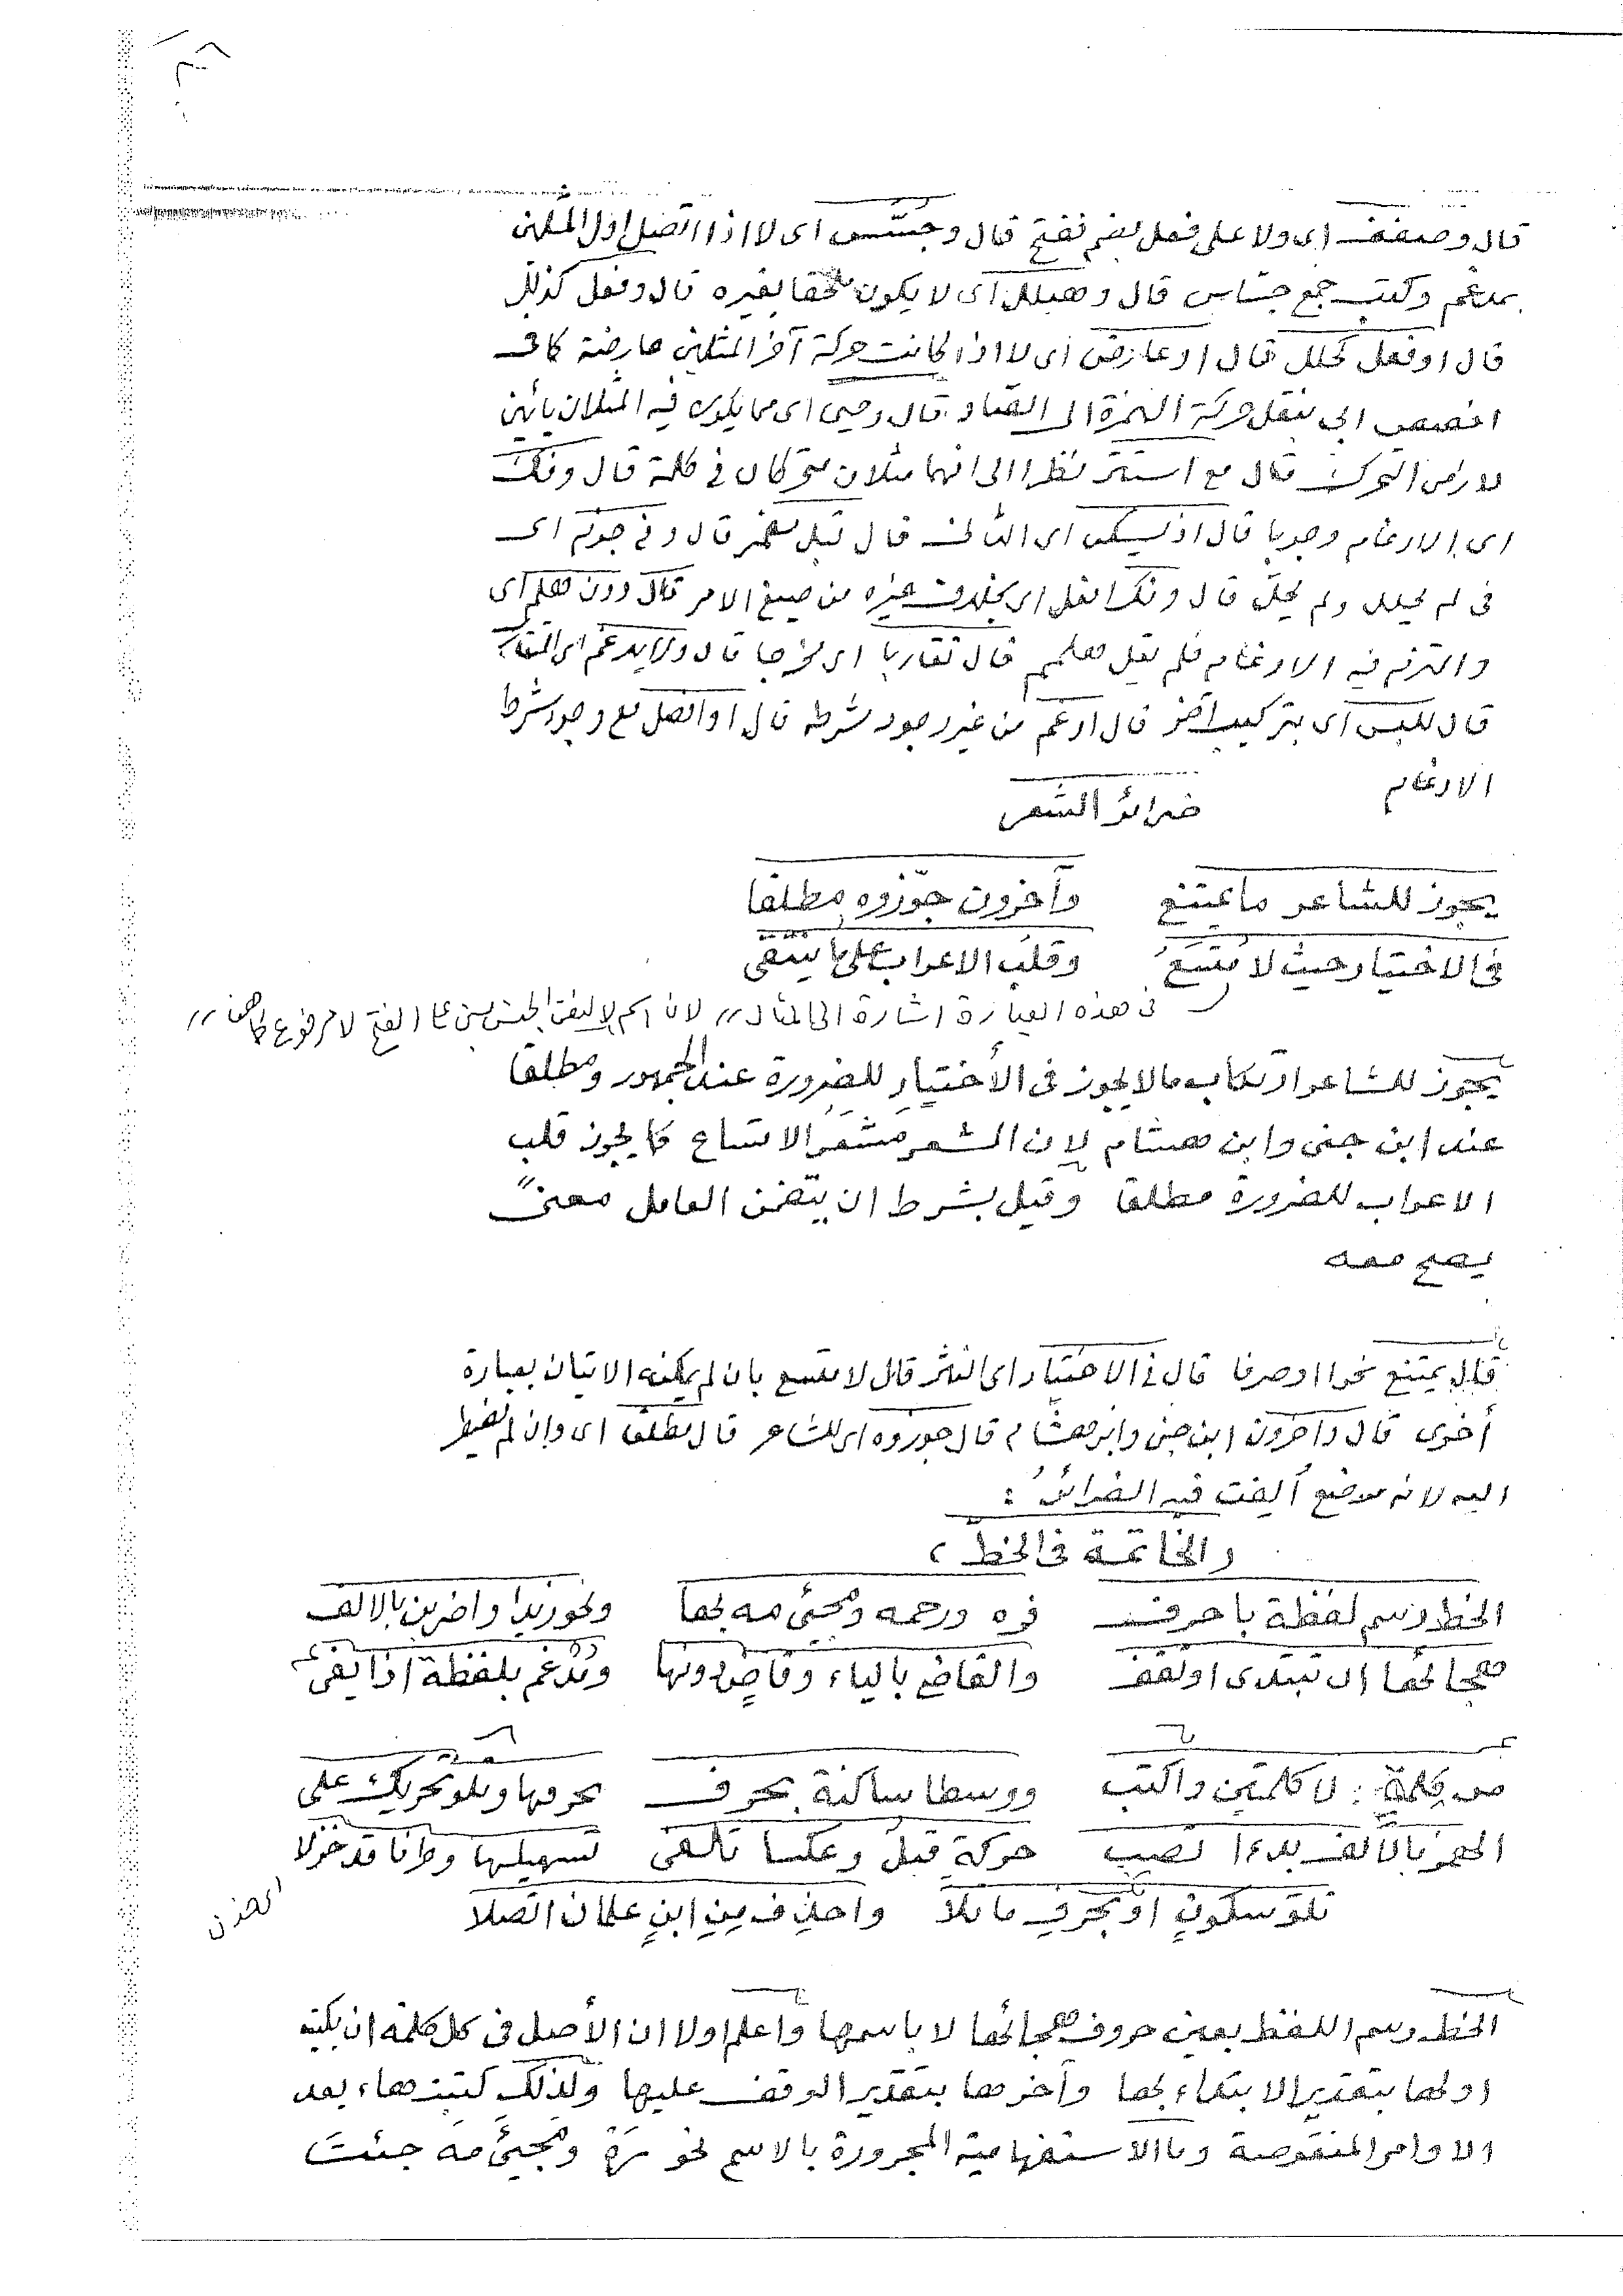 قال وصفف اى ولا على فعل بضم ففتح قال وجسّس اى لا اذا اتصل اول المثلين
بمدغم وكتب جمع جساس قال وهيلل اى لا يكون ملحقا بغيره قال وفعل كذلل
قال او فعل كحلل قال او عارض اى لا اذا كانت حركة آخر المثلين عارضة كما فى
اخصص ابى بنقل حركة الهمزة الى الصاد قال وحيى اى مما يكون فيه المثلان يائين
لازمى التحرك قال مع استتر نظرا الى انهما مثلان متحركان فى كلمة قال وفك
اى الادغام وجوبا قال اذ يسكن اى الثانى قال قبل مضمر قال وفى جزم اى
فى لم يحلل ولم يحلّ قال وفك افعل اى بخلاف غيره من صيغ الامر قال دون هلم اى
والتزم فيه الادغام فلم يقل هلمم قال تقاربا اى مخرجا قال ولا يدغم اى المتقارب
قال للبس اى بتركيب آخر قال ادغم من غير وجود شرطه قال او اتصل مع وجود شرط
الادغام
ضرائر الشعر
يجوز للشاعر ما يمتنع وآخرون جوّزوه مطلقا
فى الاختيار حيث لا متّسع وقلب الاعراب على ما ينتقى
فى هذه العبارة اشارة الى المثال // لان اسم لا لنفى الجنس يبنى على الفتح لا مرفوع //
يجوز للشاعر ارتكاب ما لا يجوز فى الأختيار للضرورة عند الجمهور ومطلقا
عند ابن جنى وابن هشام لان الشعر مشعر الاتساع كما يجوز قلب
الاعراب للضرورة مطلقا وقيل بشرط ان يتضمن العامل معنىً
يصح معه
قال يمتنع نحوا او صرفا قال فى الاختيار اى النثر قال لا متسع بان لم يمكنه الاتيان بعبارة
أخرى قال وآخرون ابن جنى وابن هشام قال جوزوه اى للشاعر قال مطلقا اى وان لم يضطر
اليه لانه موضع ألفت فيه الضرائر :
والخاتمة فى الخط ،
الخط رسم لفظة باحرف فره ورحمه ومجئ مه بها ونحو زيدا واضربن بالالف
هجائها ان تبتدى او تقف والقاضى بالياء وقاضٍ دونها وتدغم بلفظة اذا يفى
من كلمةٍ : لا كلمتين واكتب ووسطا ساكنة بحرف بحرفها وتلو تحريك على
الهمز بالالف بدءا تصب حركةٍ قبل وعكسا تالفى تسهيلها وطرفا قد خزلا
تلو سكونٍ او بحرفٍ ما تلا واحذف من ابنٍ علمان اتّصلا
اى حذف
الخط رسم اللفظ بعين حروف هجائها لا باسمها واعلم اولا ان الأصل فى كل كلمة ان يكتب
اولها بتقدير الابتداء بها وآخرها بتقدير الوقف عليها ولذلك كتبت هاء بعد
الاوامر المنقوصة وما الاستفهامية المجرورة بالاسم نحو رَهْ ومجيئَ مَهْ جئتَ